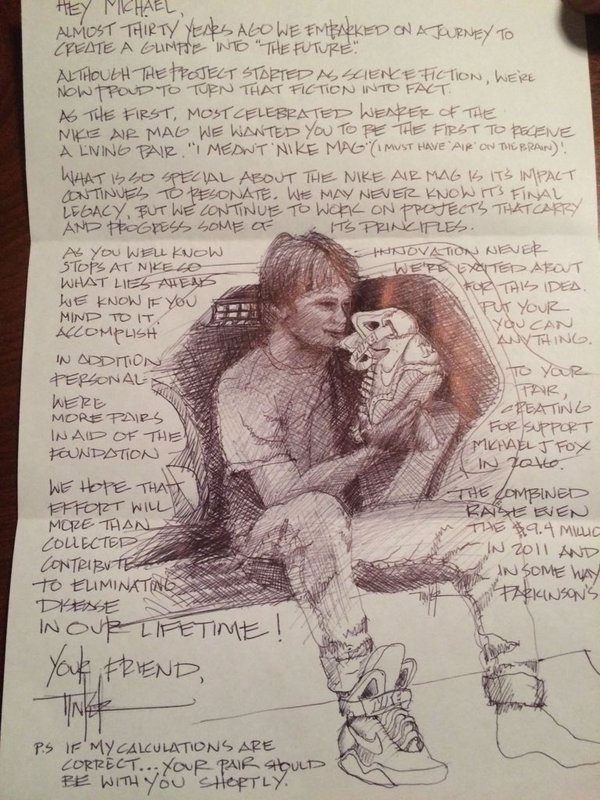 HEY MICHAEL,
ALMOST THIRTY YEARS AGO WE EMBARKED ON A JOURNEY TO
CREATE A GLIMPSE INTO "THE FUTURE".
ALTHOUGH THE PROJECT STARTED AS SCIENCE FICTION, WE'RE
NOW PROUD TO TURN THAT FICTION INTO FACT.
AS THE FIRST, MOST CELEBRATED WEARER OF THE
NIKE AIR MAG WE WANTED YOU TO BE THE FIRST TO RECEIVE
A LIVING PAIR. "I MEANT 'NIKE MAG' (I MUST HAVE 'AIR' ON THE BRAIN)!
WHAT IS SO SPECIAL ABOUT THE NIKE AIR MAG IS IT'S IMPACT
CONTINUES TO RESONATE. WE MAY NEVER KNOW IT'S FINAL
LEGACY, BUT WE CONTINUE TO WORK ON PROJECTS THAT CARRY
AND PROGRESS SOME OF ITS PRINCIPLES.
AS YOU WELL KNOW INNOVATION NEVER
STOPS AT NIKE SO WE'RE EXCITED ABOUT
WHAT LIES AHEAD FOR THIS IDEA.
WE KNOW IF YOU PUT YOUR
MIND TO IT. YOU CAN
ACCOMPLISH ANYTHING.
IN ADDITION TO YOUR
PERSONAL PAIR,
WE'RE CREATING
MORE PAIRS FOR SUPPORT
IN AID OF THE MICHAEL J FOX
FOUNDATION IN 2016.
WE HOPE THAT THE COMBINED
EFFORT WILL RAISE EVEN
MORE THAN THE $9.4 MILLIO
COLLECTED IN 2011 AND
CONTRIBUTE IN SOME WAY
TO ELIMINATING PARKINSON'S
DISEASE
TINKER
IN OUR LIFETIME!
YOUR FRIEND,
TINKER
P.S IF MY CALCULATIONS ARE
CORRECT... YOUR PAIR SHOULD
BE WITH YOU SHORTLY.